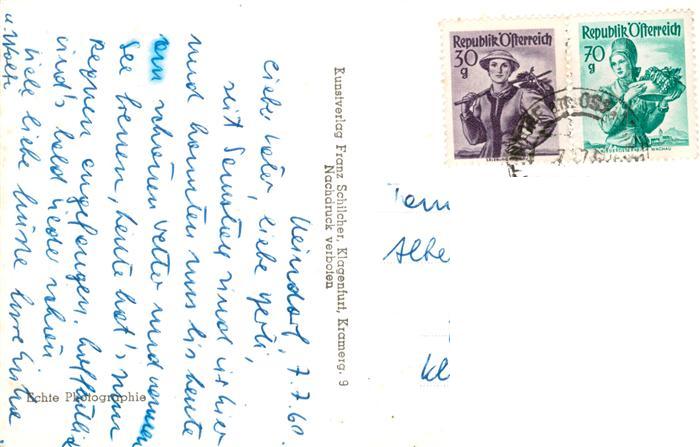 Republik Österreich
30 g
Republik Österreich
70 g
Kunstverlag Franz Schilcher, Klagenfurt, Kramerg. 9
Nachdruck verboten
7.7.60
Liebe Vater, liebe
seit Samstag sind wir hier
und konnten uns bis heute
am schönen Wetter und
See freuen, heute hat's zum
Regnen angefangen, hoffentlich
wird's bald wieder schön
Viele liebe Grüsse
u. Wolfi
Echte Photographie